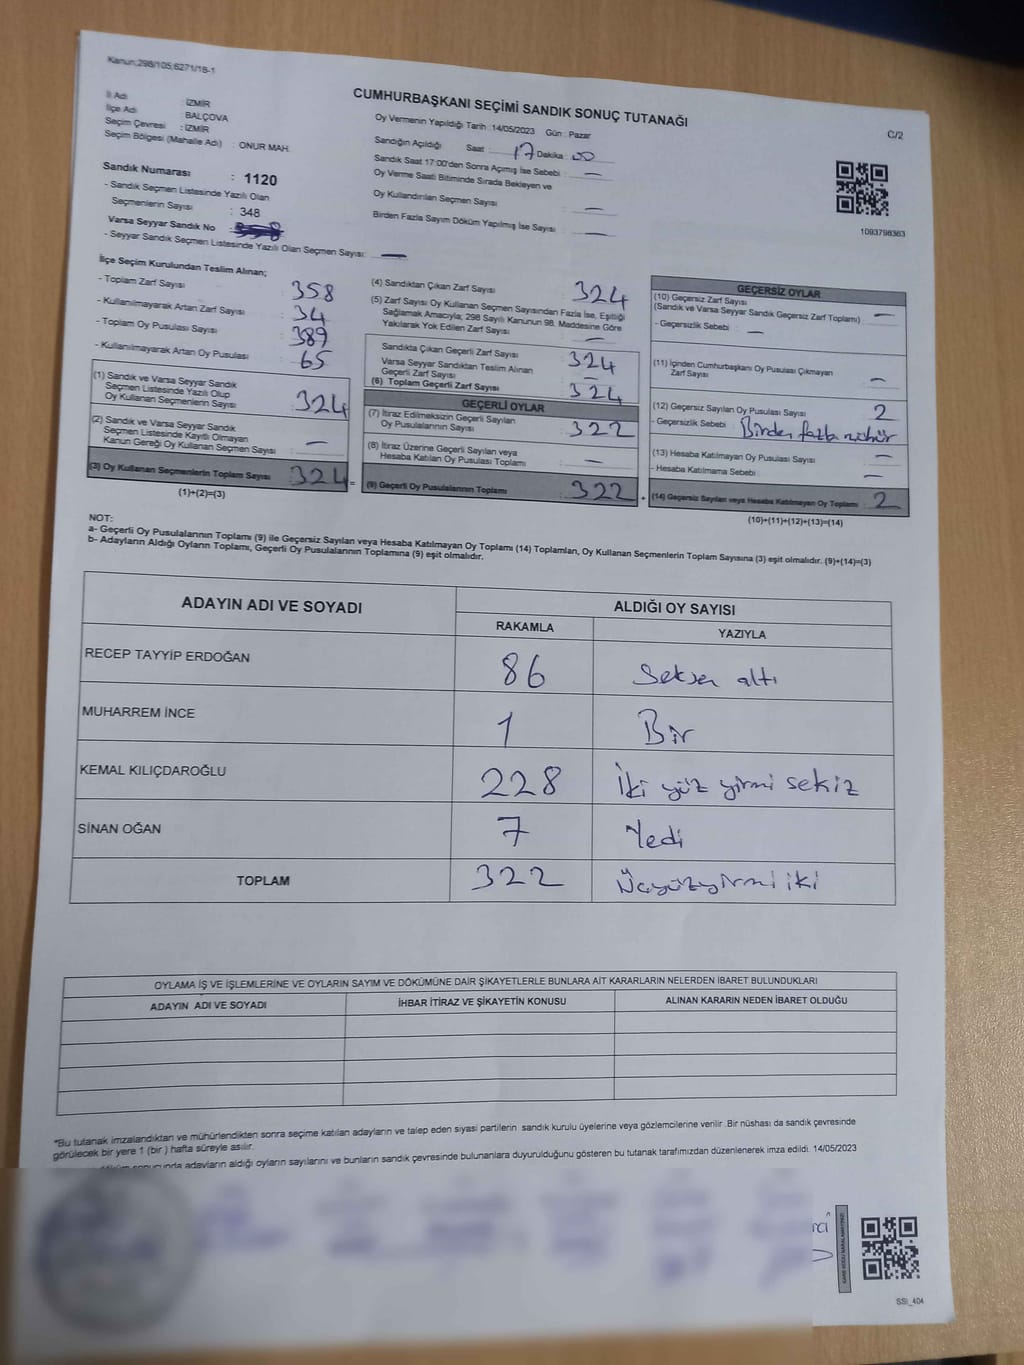 Kanun:298/105;6271/18-1
CUMHURBAŞKANI SEÇİMİ SANDIK SONUÇ TUTANAĞI
C/2
İl Adı : İZMİR
İlçe Adı : BALÇOVA
Seçim Çevresi : İZMİR
Seçim Bölgesi (Mahalle Adı) : ONUR MAH.
Oy Vermenin Yapıldığı Tarih :14/05/2023 Gün : Pazar
Sandığın Açıldığı Saat : 17 Dakika : 00
Sandık Saat 17:00'den Sonra Açımış İse Sebebi : —
Oy Verme Saati Bitiminde Sırada Bekleyen ve
Oy Kullandırılan Seçmen Sayısı : —
Birden Fazla Sayım Döküm Yapılmış İse Sayısı : —
1093796363
Sandık Numarası : 1120
- Sandık Seçmen Listesinde Yazılı Olan
Seçmenlerin Sayısı : 348
Varsa Seyyar Sandık No
- Seyyar Sandık Seçmen Listesinde Yazılı Olan Seçmen Sayısı: —
İlçe Seçim Kurulundan Teslim Alınan;
- Toplam Zarf Sayısı : 358
- Kullanılmayarak Artan Zarf Sayısı : 34
- Toplam Oy Pusulası Sayısı : 389
- Kullanılmayarak Artan Oy Pusulası : 65
(1) Sandık ve Varsa Seyyar Sandık
Seçmen Listesinde Yazılı Olup
Oy Kullanan Seçmenlerin Sayısı : 324
(2) Sandık ve Varsa Seyyar Sandık
Seçmen Listesinde Kayıtlı Olmayan
Kanun Gereği Oy Kullanan Seçmen Sayısı : —
(3) Oy Kullanan Seçmenlerin Toplam Sayısı : 324 =
(1)+(2)=(3)
(4) Sandıktan Çıkan Zarf Sayısı : 324
(5) Zarf Sayısı Oy Kullanan Seçmen Sayısından Fazla İse, Eşitliği
Sağlamak Amacıyla; 298 Sayılı Kanunun 98. Maddesine Göre
Yakılarak Yok Edilen Zarf Sayısı : —
Sandıkta Çıkan Geçerli Zarf Sayısı : 324
Varsa Seyyar Sandıktan Teslim Alınan
Geçerli Zarf Sayısı : —
(6) Toplam Geçerli Zarf Sayısı : 324
GEÇERLİ OYLAR
(7) İtiraz Edilmeksizin Geçerli Sayılan
Oy Pusulalarının Sayısı : 322
(8) İtiraz Üzerine Geçerli Sayılan veya
Hesaba Katılan Oy Pusulası Toplamı : —
(9) Geçerli Oy Pusulalarının Toplamı : 322 +
GEÇERSİZ OYLAR
(10) Geçersiz Zarf Sayısı : —
(Sandık ve Varsa Seyyar Sandık Geçersiz Zarf Toplamı)
- Geçersizlik Sebebi : —
(11) İçinden Cumhurbaşkanı Oy Pusulası Çıkmayan
Zarf Sayısı : —
(12) Geçersiz Sayılan Oy Pusulası Sayısı : 2
- Geçersizlik Sebebi : Birden fazla mühür
(13) Hesaba Katılmayan Oy Pusulası Sayısı : —
- Hesaba Katılmama Sebebi : —
(14) Geçersiz Sayılan veya Hesaba Katılmayan Oy Toplamı : 2
(10)+(11)+(12)+(13)=(14)
NOT:
a- Geçerli Oy Pusulalarının Toplamı (9) ile Geçersiz Sayılan veya Hesaba Katılmayan Oy Toplamı (14) Toplamları, Oy Kullanan Seçmenlerin Toplam Sayısına (3) eşit olmalıdır. (9)+(14)=(3)
b- Adayların Aldığı Oyların Toplamı, Geçerli Oy Pusulalarının Toplamına (9) eşit olmalıdır.
ADAYIN ADI VE SOYADI ALDIĞI OY SAYISI
RAKAMLA YAZIYLA
RECEP TAYYİP ERDOĞAN 86 Seksen altı
MUHARREM İNCE 1 Bir
KEMAL KILIÇDAROĞLU 228 İki yüz yirmi sekiz
SİNAN OĞAN 7 Yedi
TOPLAM 322 Üçyüzyirmi iki
OYLAMA İŞ VE İŞLEMLERİNE VE OYLARIN SAYIM VE DÖKÜMÜNE DAİR ŞİKAYETLERLE BUNLARA AİT KARARLARIN NELERDEN İBARET BULUNDUKLARI
ADAYIN ADI VE SOYADI İHBAR İTİRAZ VE ŞİKAYETİN KONUSU ALINAN KARARIN NEDEN İBARET OLDUĞU
*Bu tutanak imzalandıktan ve mühürlendikten sonra seçime katılan adayların ve talep eden siyasi partilerin sandık kurulu üyelerine veya gözlemcilerine verilir .Bir nüshası da sandık çevresinde
görülecek bir yere 1 (bir ) hafta süreyle asılır.
adayların aldığı oyların sayılarını ve bunların sandık çevresinde bulunanlara duyurulduğunu gösteren bu tutanak tarafımızdan düzenlenerek imza edildi. 14/05/2023
SSI_404